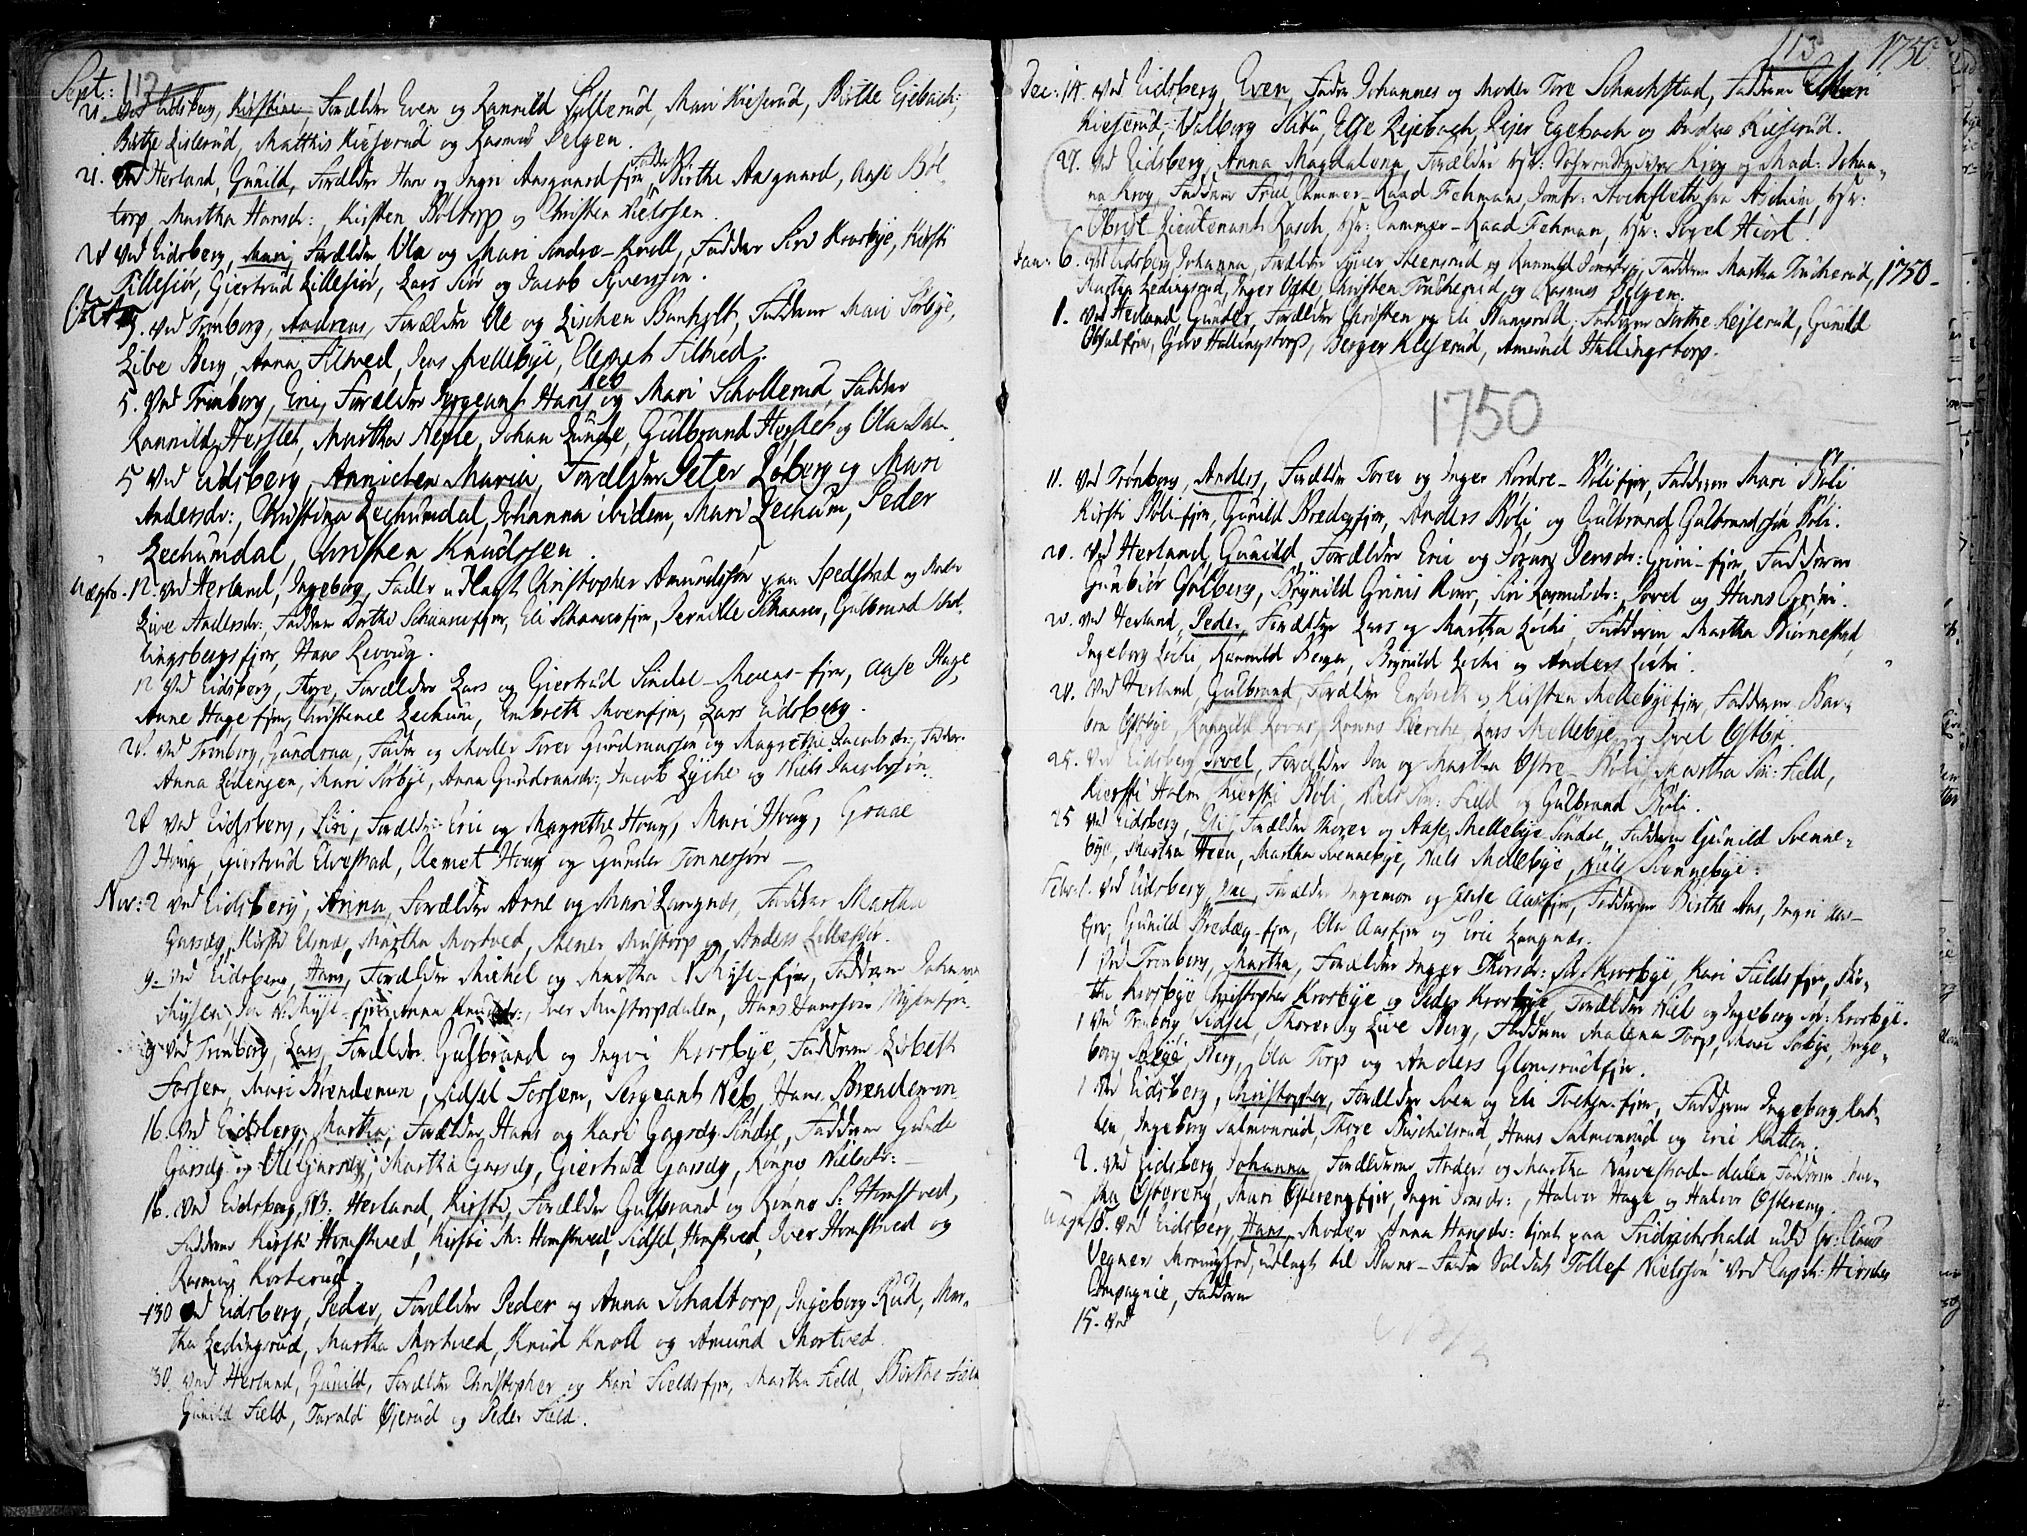 Sept: 112
21. Ved Eidsberg, Kirstine, Forældre Even og Rannild Sullerud, Mari Kieserud, Birthe Ejebach,
Birthe Lislerud, Matthis Kieserud og Rasmus Pelgen.
21. Ved Herland, Gunild, Forældre Hans og Ingri Aasgaardfjer, Birthe Aasgaard, Aase Bøl-
torp, Martha Hansdr:, Kirsten Bøltorp og Christen Nielssen.
28 Ved Eidsberg, Mari, Forældre Ola og Mari Andre-Knoll, Faddere Siri Krosbye, Kirsti
Lillesiør, Giertrud Lillesiør, Lars Siør og Jacob Syverssøn.
Octr: 5. Ved Trømborg, Andreas, Forældre Ole og Lischen Bunholt, Faddere Mari Sørbye,
Live Berg, Anna Filtved, Jens Mellebye, Clemet Filtved.
5. Ved Trømborg, Eric, Forældre Sergeant Hans Neb og Mari Schollerud, Faddere
Rannild Herslet, Martha Neple, Johan Lunde, Gulbrand Herslet og Ola Dal-
5 Ved Eidsberg, Annichen Maria, Forældre Peter Løberg og Mari
Andersdr:, Christina Lechumdal, Johanna ibidem, Mari Lechum, Peder
Lechumdal, Christen Knudssen.
Uægte. 12. Ved Herland, Ingeborg, Fader udlagt Christopher Amundssøn paa Spedstad og Moder
Live Andersdr: Faddere Dorthe Schaarefjer, Eli Schaarefjer, Pernille Schaaren, Gulbrand
lingsbergsfjer, Hans Revoug.
12 Ved Eidsberg, Thore, Forældre Lars og Giertrud Søndre-Moensfjer, Aase Hage,
Anne Hagefjer, Christence Lechum, Embreth Moenfjer, Lars Eidsberg.
28. Ved Trømborg, Gundroa, Fader og Moder Torer Gundmunssøn og Magrethe Jacobsdr:, Fadder:
Anna Lødengen, Mari Sørbye, Anna Gundvansdr:, Jacob Lyche og Niels Jacobssøn.
28 Ved Eidsberg, Siri, Forældre Eric og Magrethe Houg, Mari Houg, Graae
Houg, Giertrud Elvestad, Clemet Houg og Gunder Tønnessøn
Nov: 2 Ved Eidsberg, Anna, Forældre Arne og Mari Langnæs, Faddere Martha
Garsæg, Kirsti Elsnæs, Martha Mortved, Stener Mustorp og Anders Lillesiør.
9. Ved Eidsberg, Hans, Forældre Michel og Martha N Myse-fjer, Faddere Johanna
Mysen, Jon N: Myse-fjer, Anna Knudsdr:, Iver Mustorpdalen, Hans Hanssøn Mysenfjer
9 Ved Trømborg, Lars, Forældre Gulbrand og Ingri Krosbye, Faddere Lisbeth
Forsen, Mari Brendemon, Sidsel Forsem, Sergeant Neb, Hans Brendemon
16. Ved Eidsberg, Martha, Forældre Hans og Kari Garsæg Søndre, Faddere Gunde
Garsæg og Ole Garsæg, Martha Garsæg, Giertrud Garsæg, Rønno Nielsdr:
16. Ved Eidsberg, NB: Herland, Kirsti, Forældre Gulbrand og Rønno S: Homstved,
Faddere Kirsti Homstved, Kirsti M: Homstved, Sidsel Homstved, Iver Homstved og
Rasmus Korterud.
30 Ved Eidsberg, Peder, Forældre Peder og Anna Schaltorp, Ingeborg Rud, Mar-
tha Ledingsrud, Martha Mortved, Knud Knoll og Amund Mortved.
30. Ved Herland, Gunild, Forældre Christopher og Kari Fieldsfjer, Martha Field, Birthe Field
Gunild Field, Tarald Øjerud og Peder Field.
113 1750
Dec: 14. Ved Eidsberg, Even, Fader Johannes og Moder Tore Schachstad, Faddere
Kieserud, Valborg Slitu, Else Rejebach, Rejer Egebach og Andre Kieserud.
27. Ved Eidsberg, Anna Magdalena, Forældre Hr: Krog og Mad: Johan-
na Krog, Faddere Frue Cammer-Raad Fehman, Jomfr: Stochfleth fra Aschim, Hr:
Obrist Lieutenant Rasch, Hr: Cammer-Raad Fehman, Hr: Povel Hiort.
Jan: 6. Ved Eidsberg Johanna, Forældre Syver Steensrud og Rannild Jonsdr:, Faddere Martha Trucherud, 1750-
Martha Ledingsrud, Inger Christen Trucherud, og Rasmus Pelgen.
1. Ved Herland, Gunder, Forældre Christen og Eli Hansrud, Faddere Dorthe Kieserud, Gunild
Guro Hallingstorp, Berger Kieserud, Amund Hallingstorp.
1750
11. Ved Trømborg, Anders, Forældre Torer og Inger Nordre-Bølifjer, Faddere Mari Bøli
Kirsti Bølifjer, Gunild Bredegfjer, Anders Bøli og Gulbrand Gulbrandssøn Bøli.
20. Ved Herland, Gunild, Forældre Eric og Joran Iversdr: Grini-fjer, Faddere
Gunbiør Gulberg, Brynild Grinis Kone, Siri Rasmusdr: Povel og Hans Grini.
20. Ved Herland, Peder, Forældre Lars og Martha Lochi, Faddere Martha Biørnestad,
Ingeborg Lochi, Rannild Berger, Brynild Lochi og Anders Lochi.
28. Ved Herland, Gulbrand, Forældre Embreth og Kirsten Mellebyefjer, Faddere Bar-
bra Østbye, Rannild Lars Mellebye og Povel Østbye.
25. Ved Eidsberg Povel, Forældre Jon og Martha Østre-Bøli, Martha Sør: Field,
Kiersti Holm, Kiersti Bøli, Niels Sør: Field og Gulbrand Bøli.
25 Ved Eidsberg, Eli, Forældre Thorer og Aase Mellebye Søndre, Faddere Gunild Svenne-
bye, Martha Heen, Martha Svennebye, Niels Mellebye, Niels Svennebye.
Febr: 1. Ved Eidsberg, Forældre Ingemon og Else Aasfjer, Faddere Birthe Aas, Ingri Aas-
fjer, Gunild Bredeg-fjer, Ola Aasfjer og Eric Langnæs.
1 Ved Trømborg, Martha, Forældre Inger Thorsdr: Sør-Krosbye, Kari Fieldsfjer, Bir-
the Krosbye Christopher Krosbye og Peder Krosbye Forældre Niels og Ingeborg Sør: Krosbye.
1 Ved Trømborg, Sidsel, Thorer og Live Berg, Faddere Malena Torp, Mari Sørbye, Inge-
borg Berg, Ola Torp og Anders Glomsrudfjer.
1 Ved Eidsberg, Christopher, Forældre Sven og Eli Tochen-fjer, Faddere Ingeborg Kat-
len, Ingeborg Salmonrud, Thore Buschilsrud, Hans Salmonrud og Eric Katten.
2. Ved Eidsberg Johanna, Forældrene Anders og Martha Narvestad-dalen Faddere Mar-
tha Østereng, Mari Østerengfjer, Ingri Jonsdr:, Halvor Hage og Halvor Østereng.
Uægte 8. Ved Eidsberg, Hans, Moder Anna Hansdr: tient paa Fridrichshald udi Sr: Claus
Vegners udlagt til Barne-Fader Soldat Tollef Nielssøn ved Capt: Hirsches
Compagnie, Faddere
15. Ved